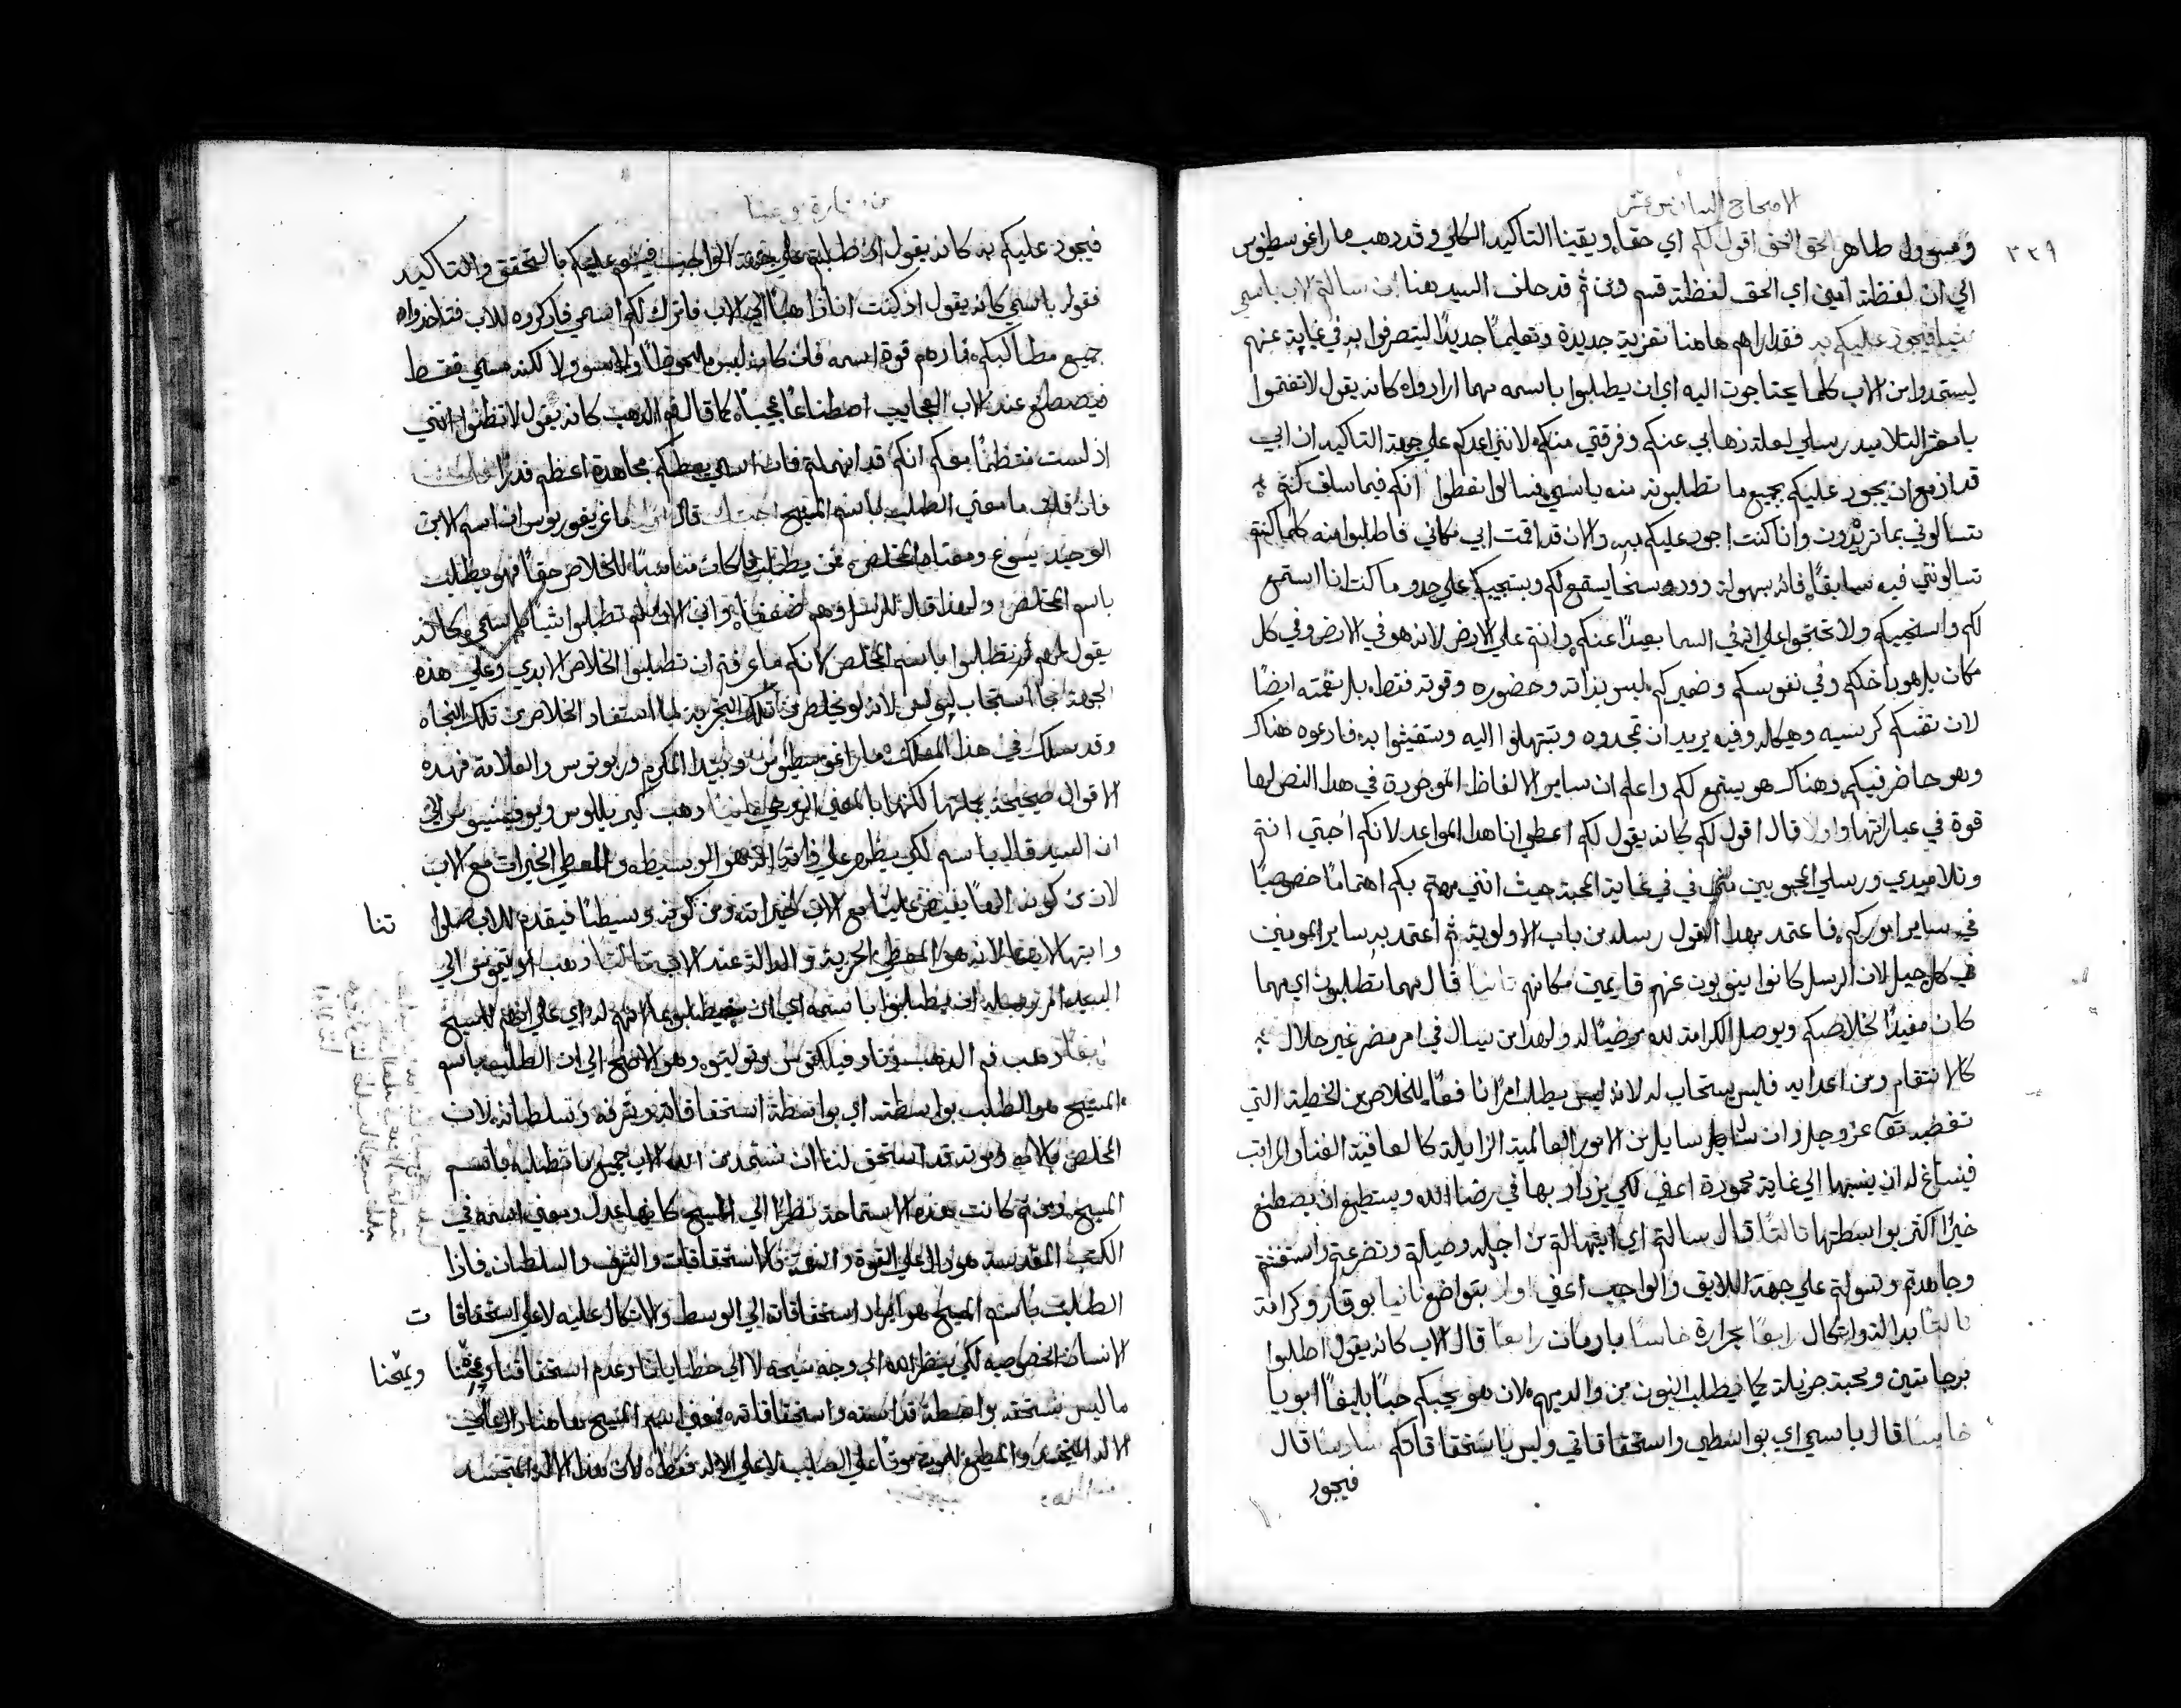 الاصحاح السادس عشر
٣٣٩
ومسوول ظاهر الحق الحق اقول لكم اي حقا ويقينا التاكيد الكلي وقد ذهب ماراغوسطينوس
الي ان لفظة امين اي الحق لفظة قسم ومن ثم قد حلف السيد هنا ان سالتم الاب باسمي
شيا فيجود عليكم به فقال لهم هاهنا تعزية جديدة وتعليمًا جديدًا ليتصرفوا به في غيابه عنهم
ليستمدوا من الاب كلما يحتاجون اليه اي ان يطلبوا باسمه مهما ارادواه كانه يقول لا تغتموا
يا معشر التلاميد رسلي لعلة ذهابي عنكم وفرقتي منكم لانني اعدكم علي جهة التاكيد ان ابي
قد ازمع ان يجود عليكم بجميع ما تطلبونه منه باسمي فسالوا انكم فيما سلف كنتم
تسالوني بما تريدون وانا كنت اجود عليكم به والان قد اقمت ابي مكاني فاطلبوا منه كلما كنتم
تسالونني فيه سابقًا فانه بسهولة وجود وسخا يستمع لكم ويستجيبكم علي حدو ما كنت انا استمع
لكم واستجيبكم ولا تحتجوا علي انه في السما بعيدًا عنكم وانتم علي الارض لانه هو في الارض وفي كل
مكان بل هو داخلكم وفي نفوسكم وضميركم ليس بذاته وحضوره وقوته فقط بل بنعمته ايضًا
لان نفسكم كرسيه وهيكله وفيه يريد ان تمجدوه وتبتهلوا اليه وتستغيثوا به فادعوه هناك
وهو حاضر فيكم وهناك هو يستمع لكم واعلم ان ساير الالفاظ الموجودة في هدا النص لها
قوة في عباراتها اولا قال اقول لكم كانه يقول لكم اعطي انا هدا المواعد لانكم احبتي انتم
وتلاميدي ورسلي المحبوبين مني في غاية المحبة حيث انني مهتم بكم اهتمامًا خصوصيًا
في ساير اموركم فاعتمد بهدا القول رسله من باب الاولوية ثم اعتمد به ساير المومنين
في كل جيل لان الرسل كانوا ينوبون عنهم قايمين مكانهم ثانيا قال مهما تطلبون اي مهما
كان مفيدًا لخلاصكم ويوصل الكرامة لله مرضيًا له ولهدا من يسال في امر مضر غير حلال
كالانتقام من اعدايه فليس يستجاب له لانه ليس يطلب امرًا نافعًا للخلاص من الخطية التي
تغضبه تعالي عز وجل وان سايل من الامور العالمية الزايلة كالعافية الغنا والمراتب
فينساغ له ان ينسبها الي غاية محمودة اعني لكي يزداد بها في رضا الله ويستطيع ان يصطنع
خيرًا اكتر بواسطتها ثالثًا قال سالتم اي ابتهالتم من اجله وصليتم وتضرعتم واستغنتم
وجاهدتم وتسولتم علي جهة اللايق والواجب اعني اولا بتواضع ثانيا بوقار وكرامة
ثالثا بدالة واتكال رابعًا بحرارة خامسا بادمان رابعًا قال الاب كانه يقول اطلبوا
برجا متين ومحبة جزيلة كما يطلب البنون من والديهم لان هو يحبكم حبًا بليغًا ابويا
خامسا قال باسمي اي بواسطتي واستحقاقاتي وليس باستحقاقاتكم سادسا قال
فيجود
فيجود عليكم به كانه يقول ان طلبتم علي جهة الواجب فينعم عليكم بالتحقق والتاكيد
فقوله باسمي كانه يقول اذ كنت انا ذاهبًا الي الاب فاترك لكم اسمي فاذكروه للاب فتاخدواه
جميع مطاليبكم فاراهم قوة اسمه فان كان ليس ملحوظًا ولا مسوولا لكنه مسمي فقط
فيصطنع عند الاب العجايب اصطناعًا عجيبًا كما قال فم الدهب كانه يقول لا تظنوا انني
اذ لست معكم انكم قد اهملتم فان اسمي يعطيكم مجاهدة اعظم قدرًا
فان قلت ما معني الطلب باسم المسيح اجبتك قال ماغريغوريوس ان اسم الابن
الوحيد يسوع ومعناه المخلص فمن يطلب ما كان مناسبًا للخلاص حقًا فهو يطلب
باسم المخلص ولهدا قال للرسل وهم ضعفا والي الان لم تطلبوا شيًا باسمي كانه
يقول لهم لم تطلبوا باسم المخلص لانكم ما عرفتم ان تطلبوا الخلاص الابدي وعلي هده
الجهة ما استجاب لبولس لانه لو يخلص من تلك التجربة لما استفاد الخلاص من تلك النجاه
وقد سلك في هدا المسلك ماراغوسطينوس وبيدا المكرم وربوتوس والعلامة فهده
الاقوال صحيحة بجملتها لكنها بالمعني الروحي ثانيًا دهب كيريللوس ويوفيميوس الي
ان السيد قال باسمي لكي يظهر علي ذاته انه هو الوسيط والمعطي الخيرات مع الاب
لان من كونه الهًا يفيض علينا مع الاب الخيرات ومن كونه وسيطًا فيقدم للاب صلوا
تنا
وابتهالاتنا لانه هو المعطي الحرية والدالة عند الاب ثالثًا دهب الي
السيد امر رسله ان يطلبوا باسمه اي ان يطلبوا
رابعًا دهب فم الدهب وتاوفيلكتوس وتوليتوس وهو الاصح الي ان الطلب باسم
المسيح هو الطلب بواسطته اي بواسطة استحقاقاته وشرفه وسلطانه لان
المخلص بالامه وموته قد استحق لنا ان نستمد من الله الاب جميع ما نطلبه باسم
المسيح ومن ثم كانت هده الاستماحة نظرًا الي المسيح كانها عدل ومعني اسمه في
الكتب المقدسة هو دال علي القوة والنعمة والاستحقاقات والشرف والسلطان فاذا
الطلب باسم المسيح هو ايراد استحقاقاته الي الوسط والاتكال عليه لا علي استحقاقا
ت
الانسان الخصوصيه لكي ينظر الله الي وجه مسيحه لا الي خطايانا وعدم استحقاقنا
ويمنحنا
ما ليس نستحقه بواسطة قداسته واستحقاقاته فمعني اسم المسيح هاهنا دال علي
الاله المتجسد والمطيع للموت موتًا علي الصليب لا علي الاله فقط لان هدا الاله المتجسد